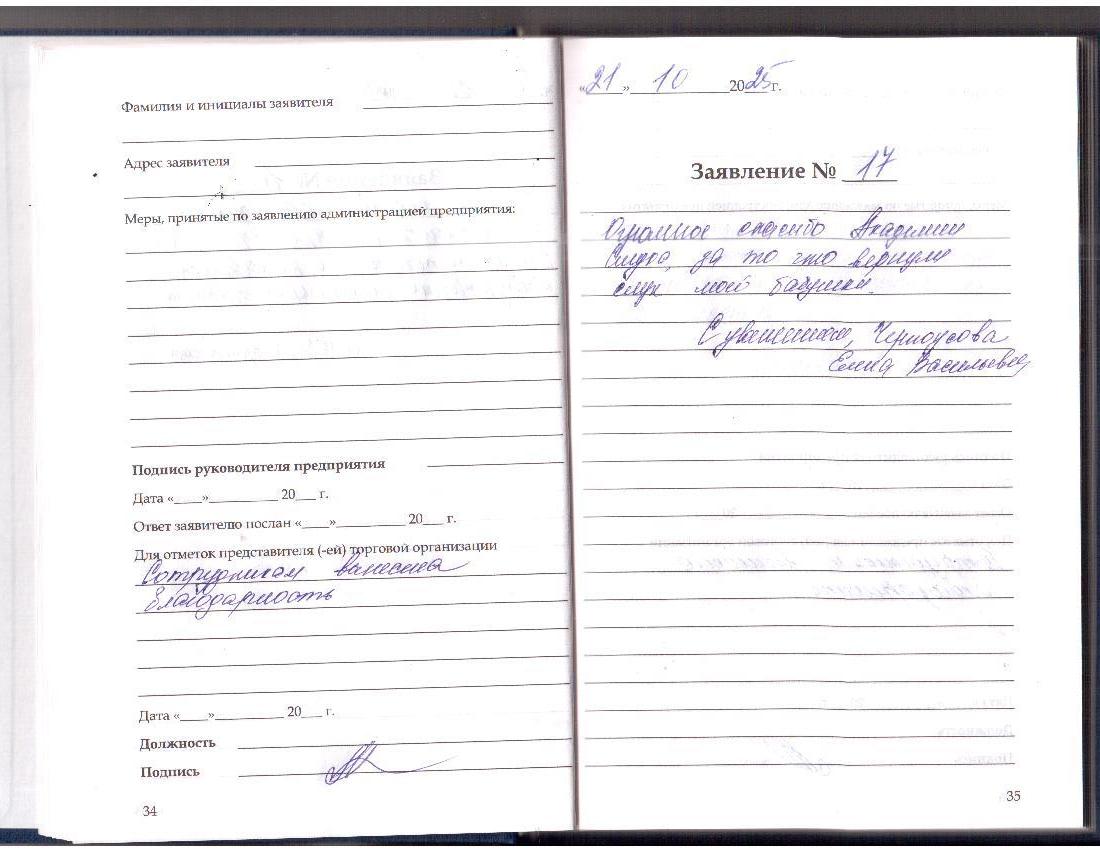 Фамилия и инициалы заявителя
Адрес заявителя
Меры, принятые по заявлению администрацией предприятия:
Подпись руководителя предприятия
Дата «____»__________ 20___ г.
Ответ заявителю послан «____»__________ 20___ г.
Для отметок представителя (-ей) торговой организации
Сотрудникам вынесена
благодарность
Дата «____»__________ 20___ г.
Должность
Подпись
34
«21» 10 2025г.
Заявление № 17
Огромное спасибо Академии
Слуха, за то что вернули
слух моей бабушки.
С уважением, Черноусова
Елена Васильевна
35